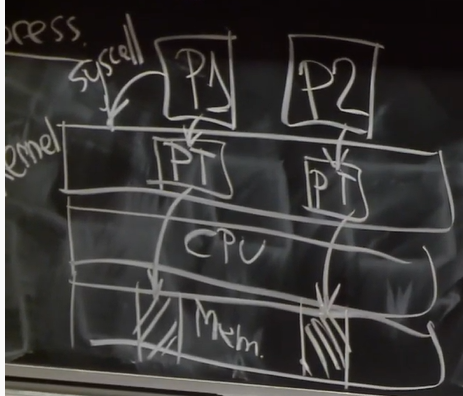 press.
syscell
P1
P2
kernel
PT
PT
CPU
Mem.